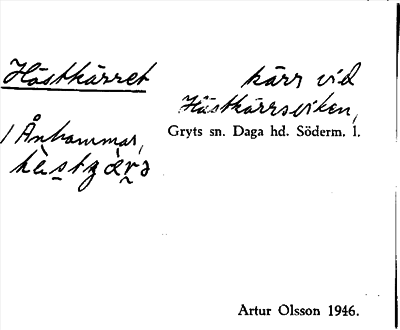 Hästkärret
kärr vid
Hästkärrsviken,
Gryts sn. Daga hd. Söderm. l.
/ Ånhammar,
Artur Olsson 1946.